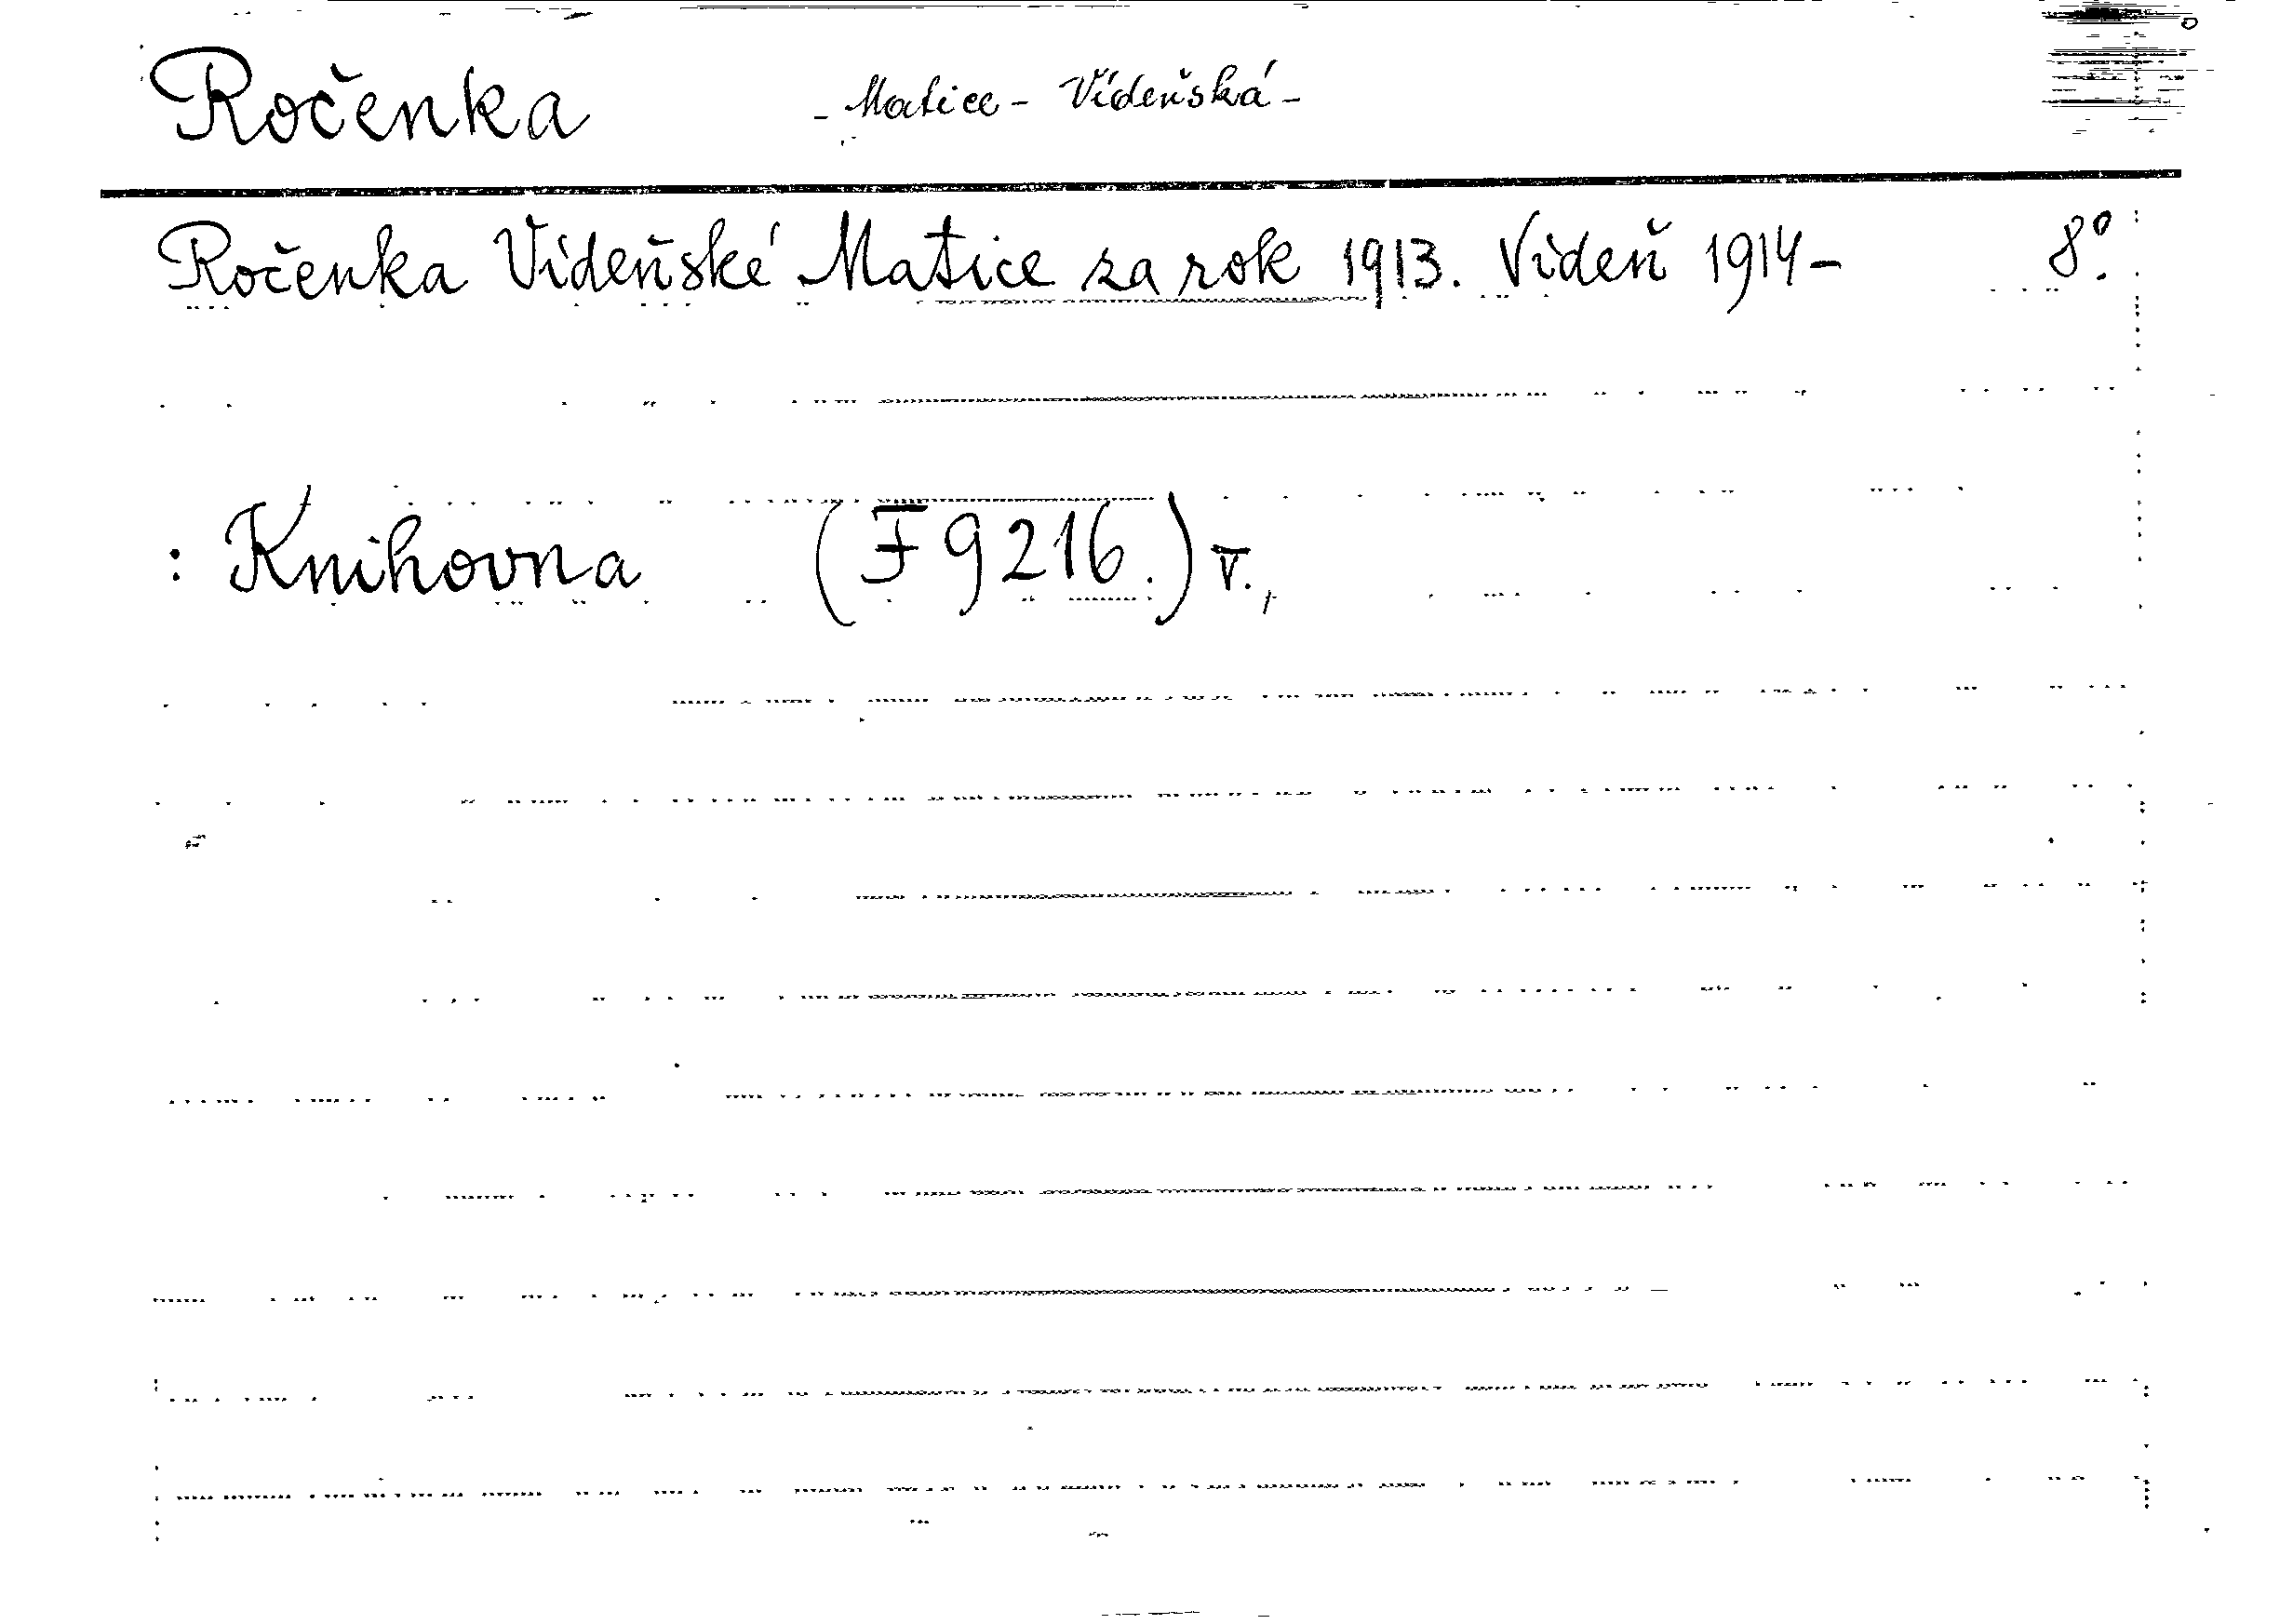 Ročenka - Matice - Vídeňská -
Ročenka Vídeňské Matice za rok 1913. Vídeň 1914- 8°.
: Knihovna (F 9216.) v.,